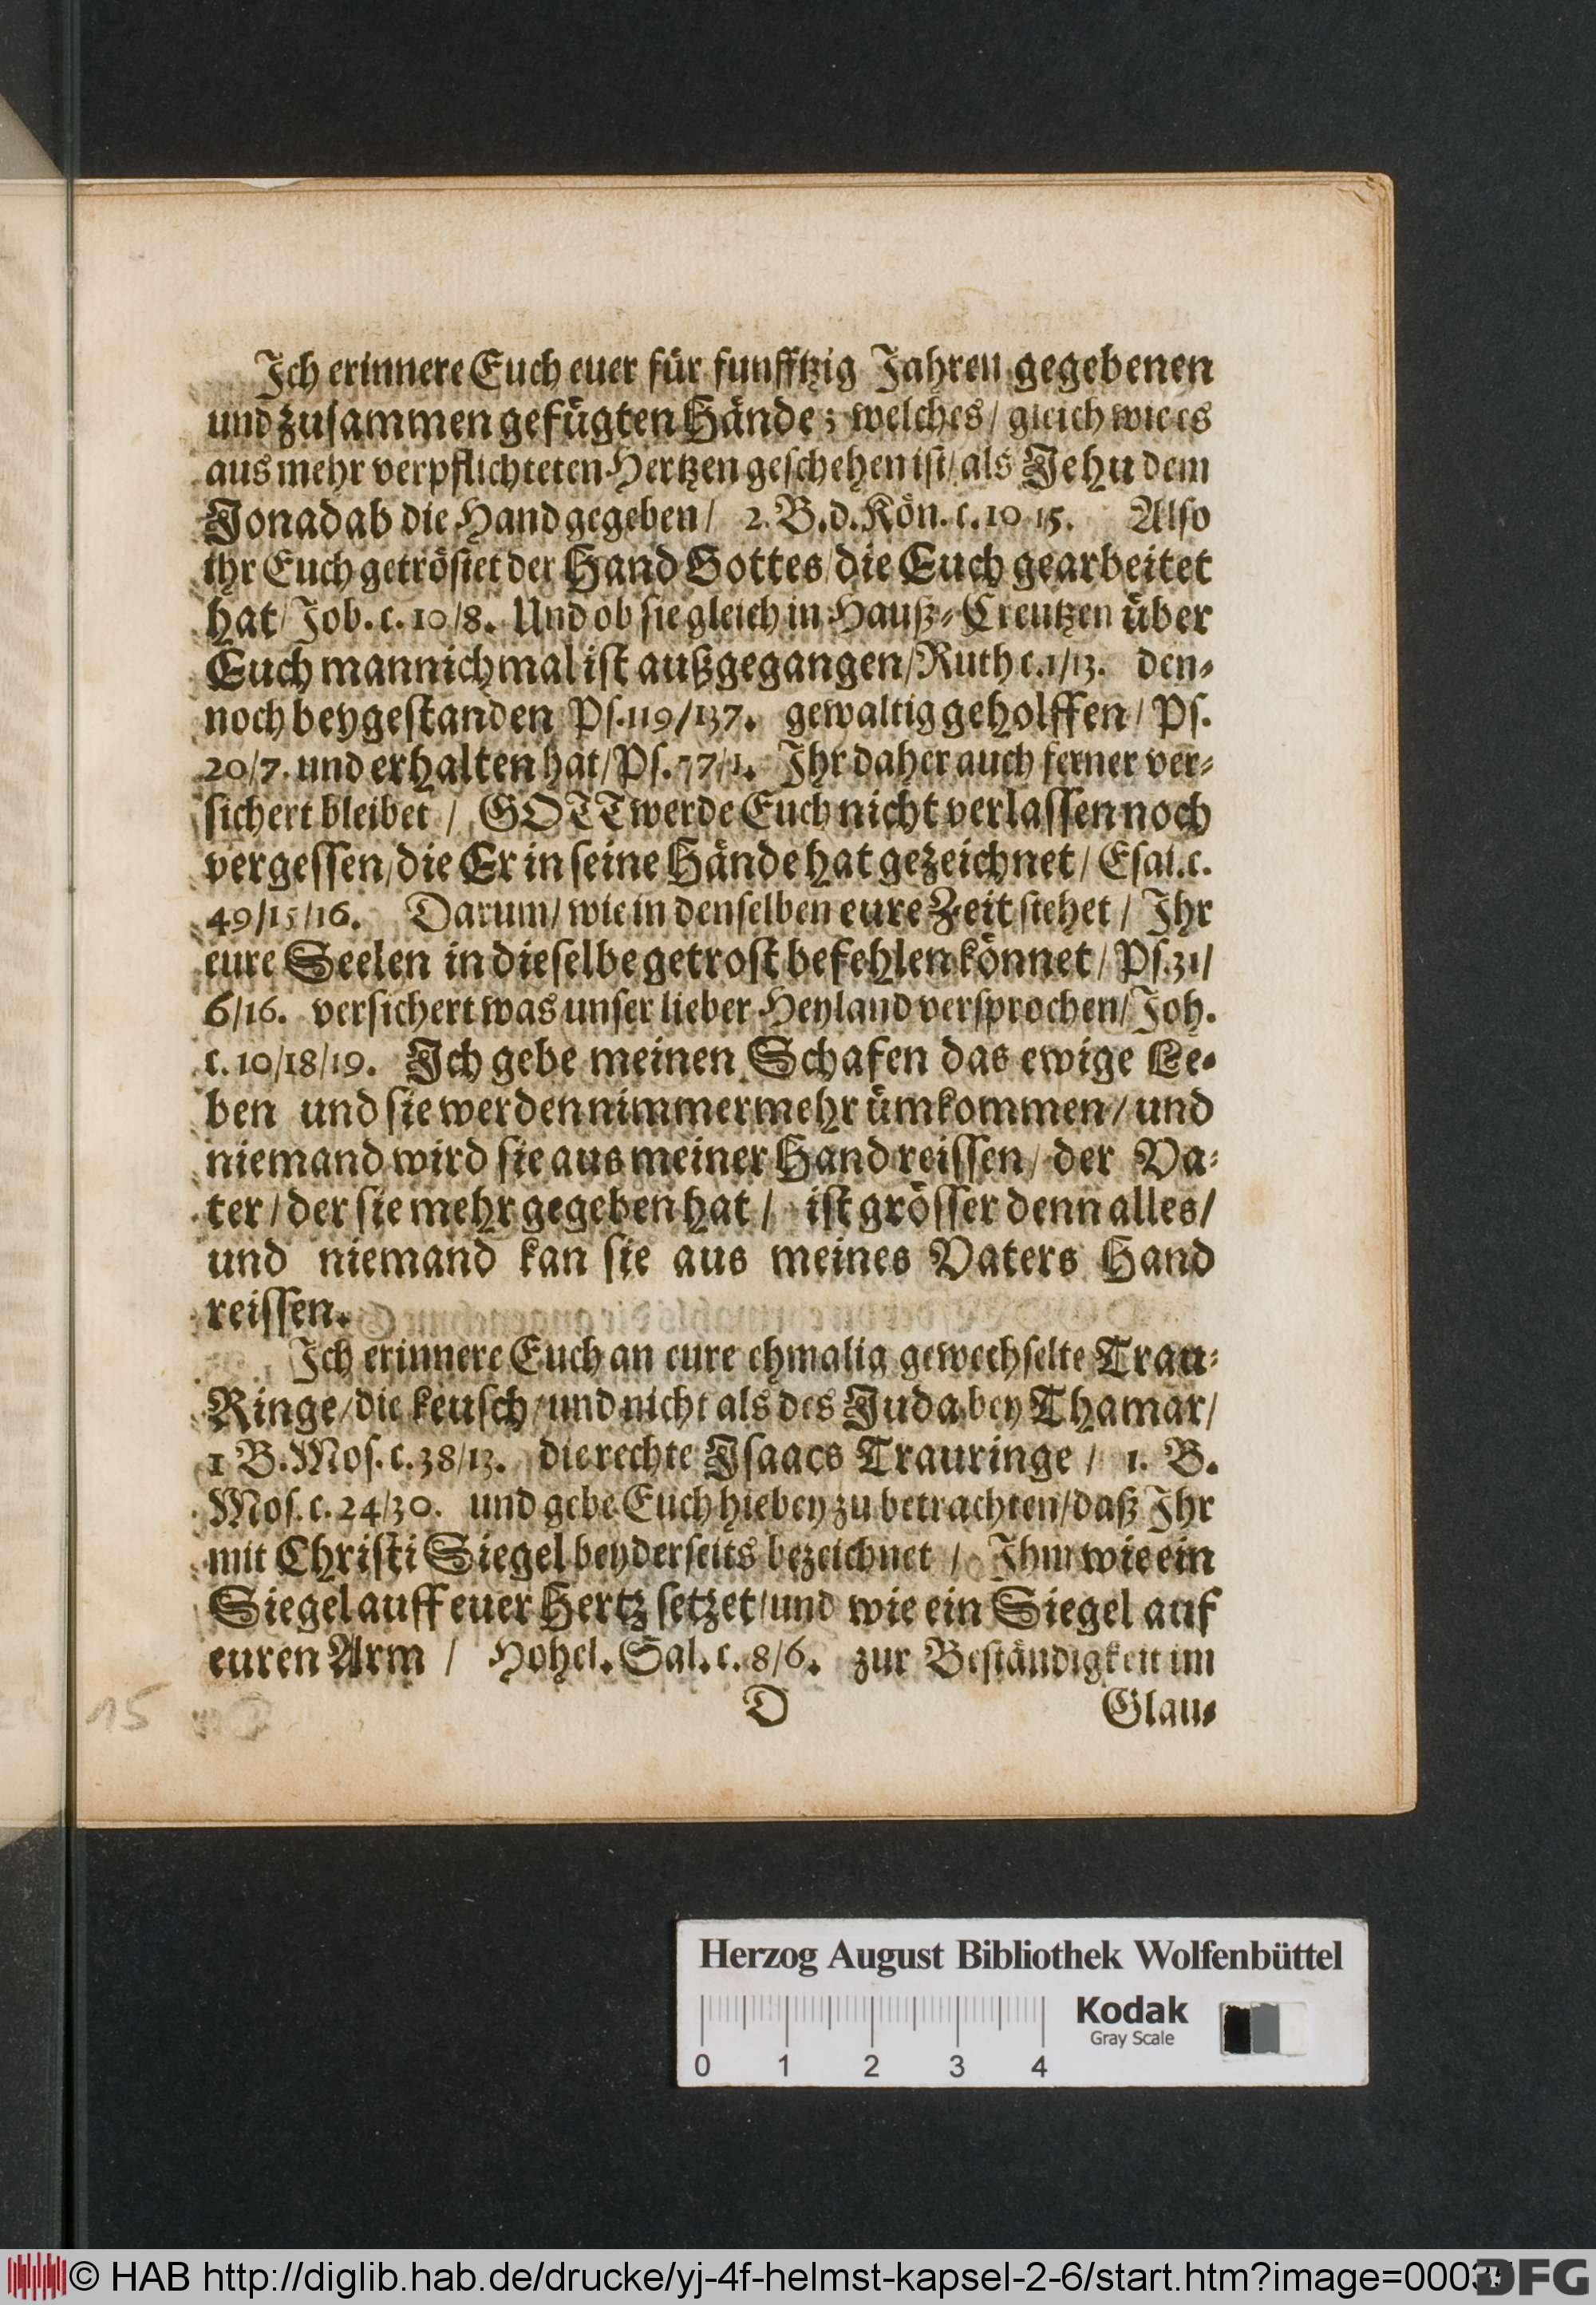 Ich erinnere Euch euer für funfftzig Jahren gegebenen
und zusammen gefügten Hände; welches / gleich wie es
aus mehr verpflichteten Hertzen geschehen ist / als Jehu dem
Jonadab die Hand gegeben / 2. B. d. Kön. c. 10 15. Also
ihr Euch getröstet der Hand Gottes / die Euch gearbeitet
hat / Job. c. 10/8. Und ob sie gleich in Hauß-Creutzen über
Euch mannichmal ist außgegangen / Ruth c. 1/13. den-
noch beygestanden Ps. 119/137. gewaltig geholffen / Ps.
20/7. und erhalten hat / Ps. 77/1. Ihr daher auch ferner ver-
sichert bleibet / GOTT werde Euch nicht verlassen noch
vergessen / die Er in seine Hände hat gezeichnet / Esai. c.
49/15/16. Darum / wie in denselben eure Zeit stehet / Ihr
eure Seelen in dieselbe getrost befehlen könnet / Ps. 31/
6/16. versichert was unser lieber Heyland versprochen / Joh.
c. 10/18/19. Ich gebe meinen Schafen das ewige Le-
ben und sie werden nimmermehr ümkommen / und
niemand wird sie aus meiner Hand reissen / der Va-
ter / der sie mehr gegeben hat / ist grösser denn alles /
und niemand kan sie aus meines Vaters Hand
reissen.
Ich erinnere Euch an eure ehmalig gewechselte Trau-
Ringe / die keusch / und nicht als des Juda bey Thamar /
1 B. Mos. c. 38/13. die rechte Isaacs Trauringe / 1. B.
Mos. c. 24/30. und gebe Euch hiebey zu betrachten / daß Ihr
mit Christi Siegel beyderseits bezeichnet / Ihm wie ein
Siegel auff euer Hertz setzet / und wie ein Siegel auf
euren Arm / Hohel. Sal. c. 8/6. zur Beständigkeit im
D Glau-
15
Herzog August Bibliothek Wolfenbüttel
Kodak
Gray Scale
0 1 2 3 4
© HAB http://diglib.hab.de/drucke/yj-4f-helmst-kapsel-2-6/start.htm?image=0003
DFG